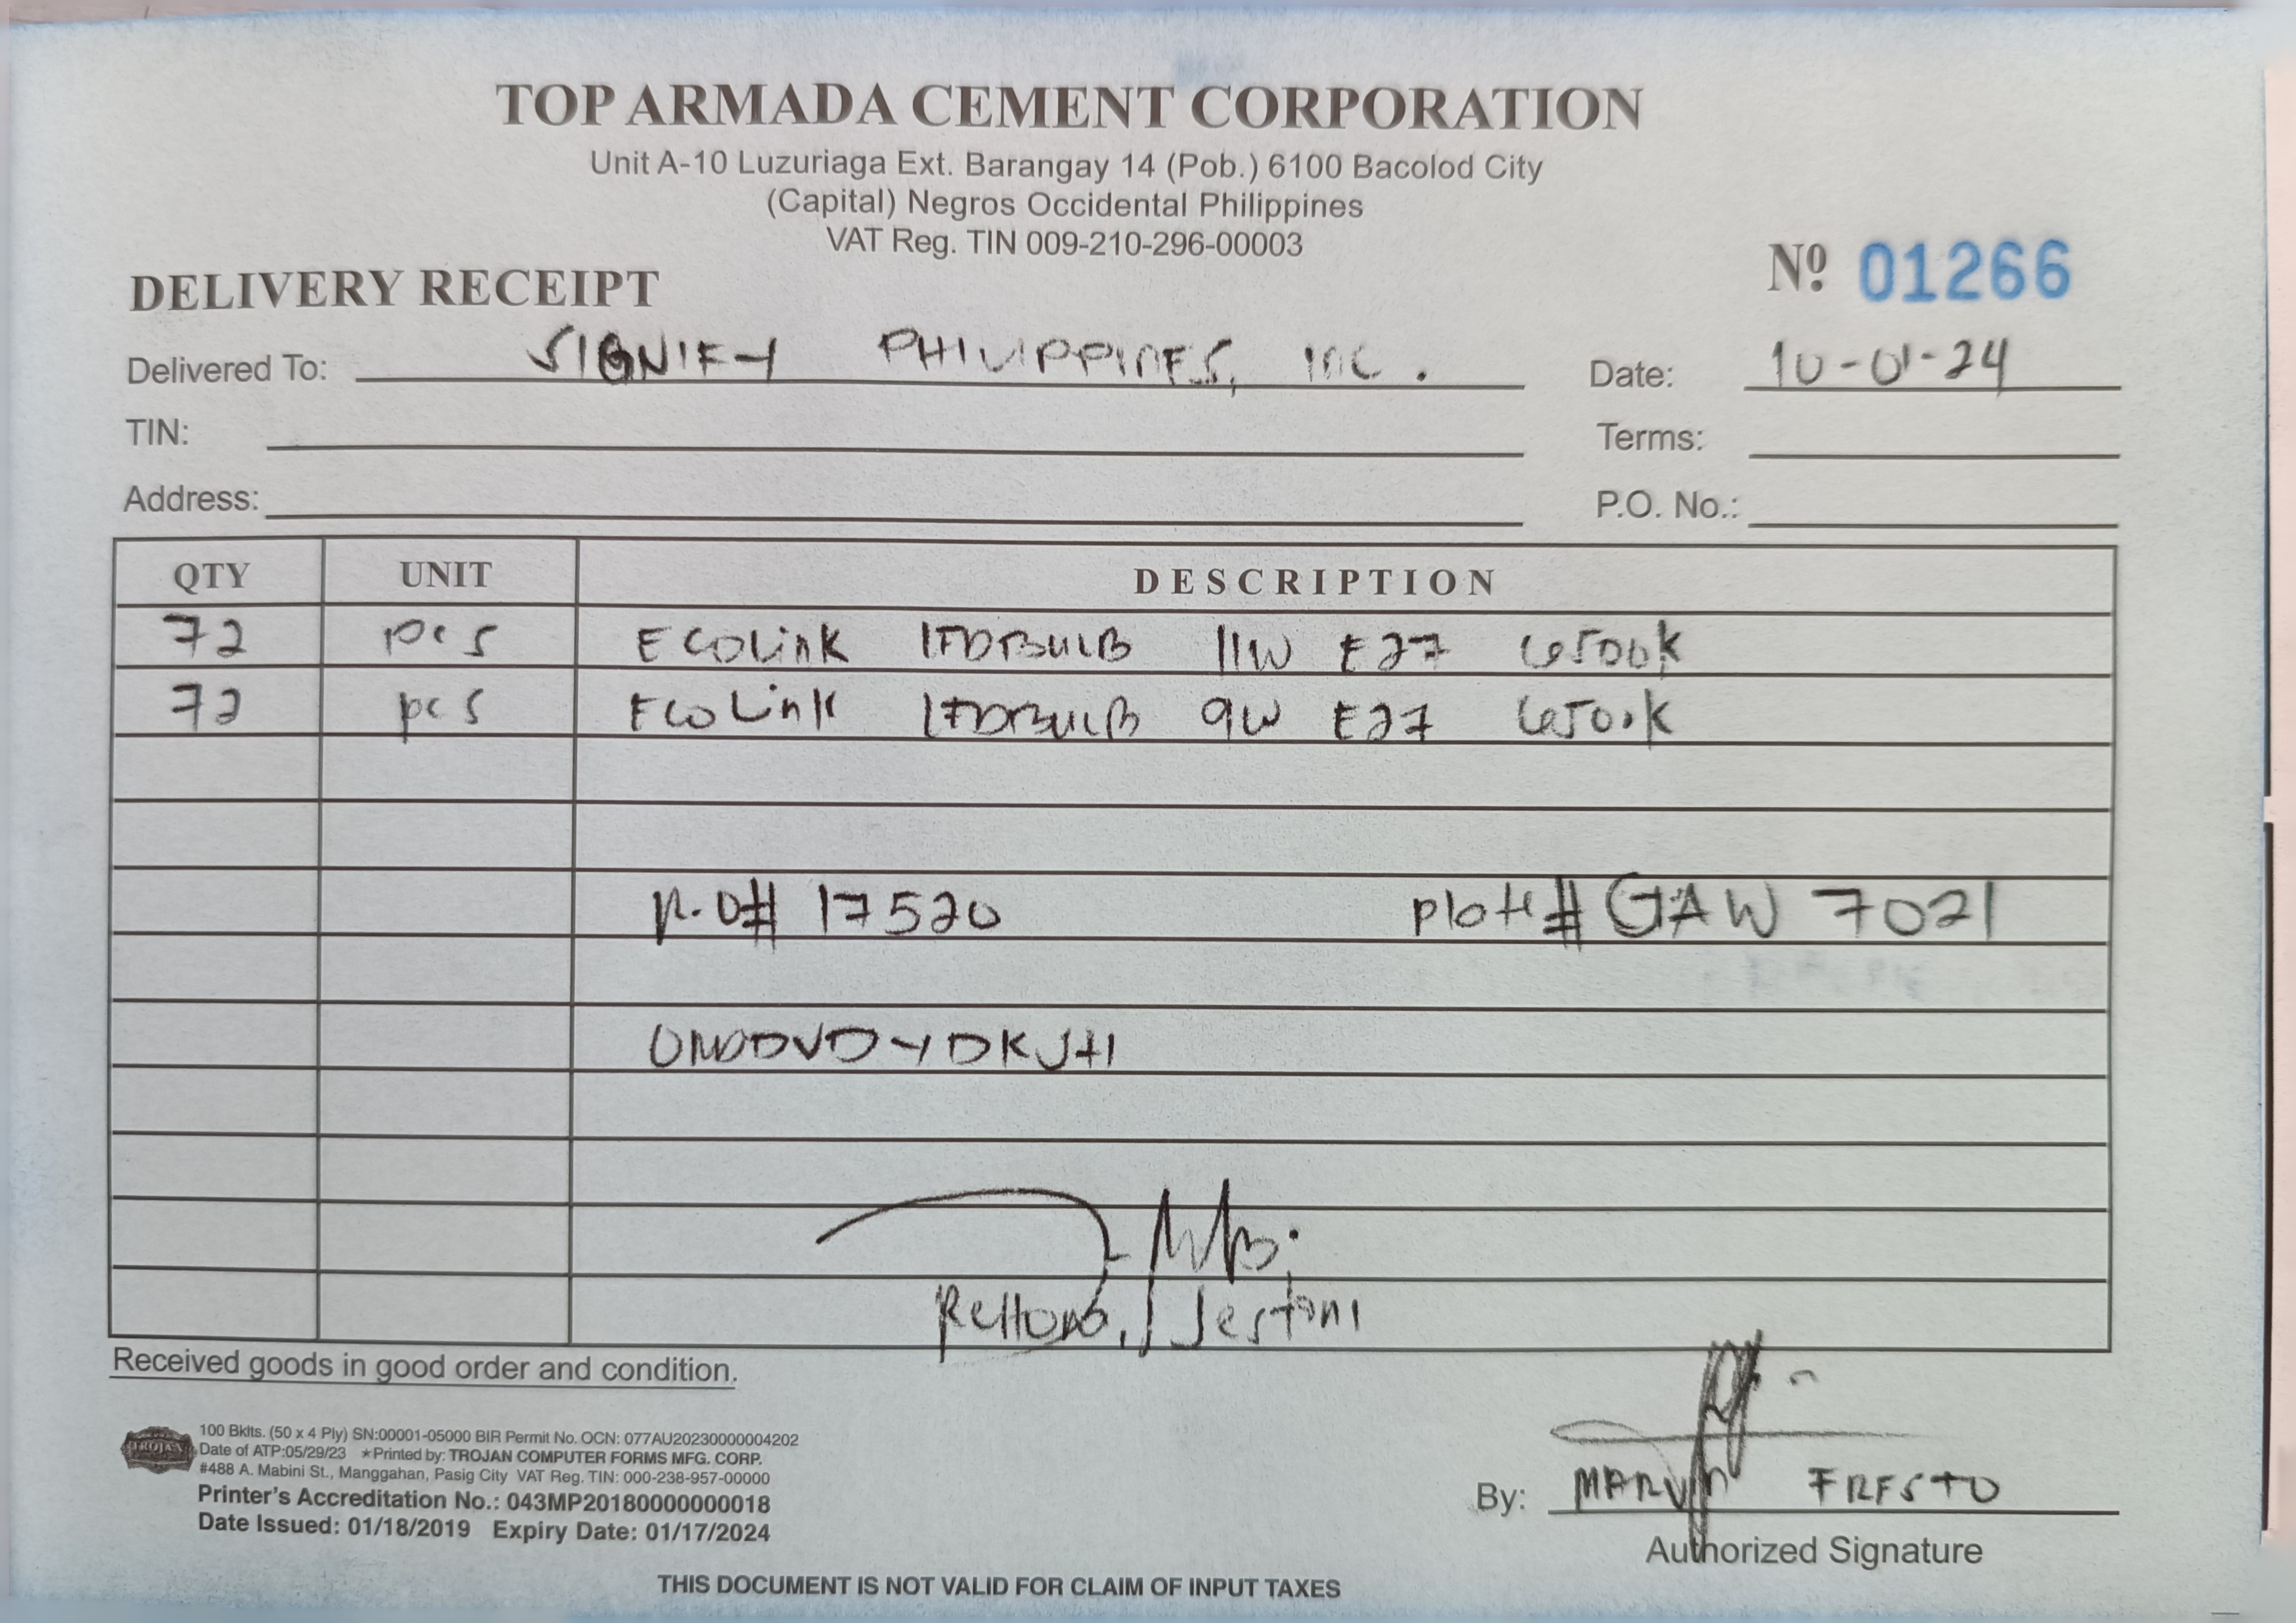 TOP ARMADA CEMENT CORPORATION
Unit A-10 Luzuriaga Ext. Barangay 14 (Pob.) 6100 Bacolod City
(Capital) Negros Occidental Philippines
VAT Reg. TIN 009-210-296-00003
DELIVERY RECEIPT
Nº 01266
Delivered To: SIGNIFY PHILIPPINES, INC.
Date: 10-01-24
TIN:
Terms:
Address:
P.O. No.:
QTY UNIT DESCRIPTION
72 pcs ECOLink LEDBULB 11W E27 6500k
72 pcs ECOLink LEDBULB 9W E27 6500K
17520 plate# GAW 7021
Jestoni
Received goods in good order and condition.
TROJAN
100 Bklts. (50 x 4 Ply) SN:00001-05000 BIR Permit No. OCN: 077AU20230000004202
Date of ATP:05/29/23 ★Printed by: TROJAN COMPUTER FORMS MFG. CORP.
#488 A. Mabini St., Manggahan, Pasig City VAT Reg. TIN: 000-238-957-00000
Printer's Accreditation No.: 043MP20180000000018
Date Issued: 01/18/2019 Expiry Date: 01/17/2024
By: MARVIN FRESTO
Authorized Signature
THIS DOCUMENT IS NOT VALID FOR CLAIM OF INPUT TAXES